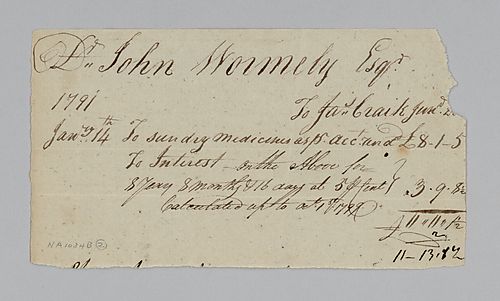 Dr. John Wormely Esqr.
1791 To Jas. Craik Junr. Dr
Janry 14th To sundry medicines as pr. acct. and £8-1-5
To Interest on the Above for
8 Years 8 months & 16 days at 5 pr Cent 3.9.8½
Calculated up to
11"11"0½
2
11-13-½
NA1034B ②